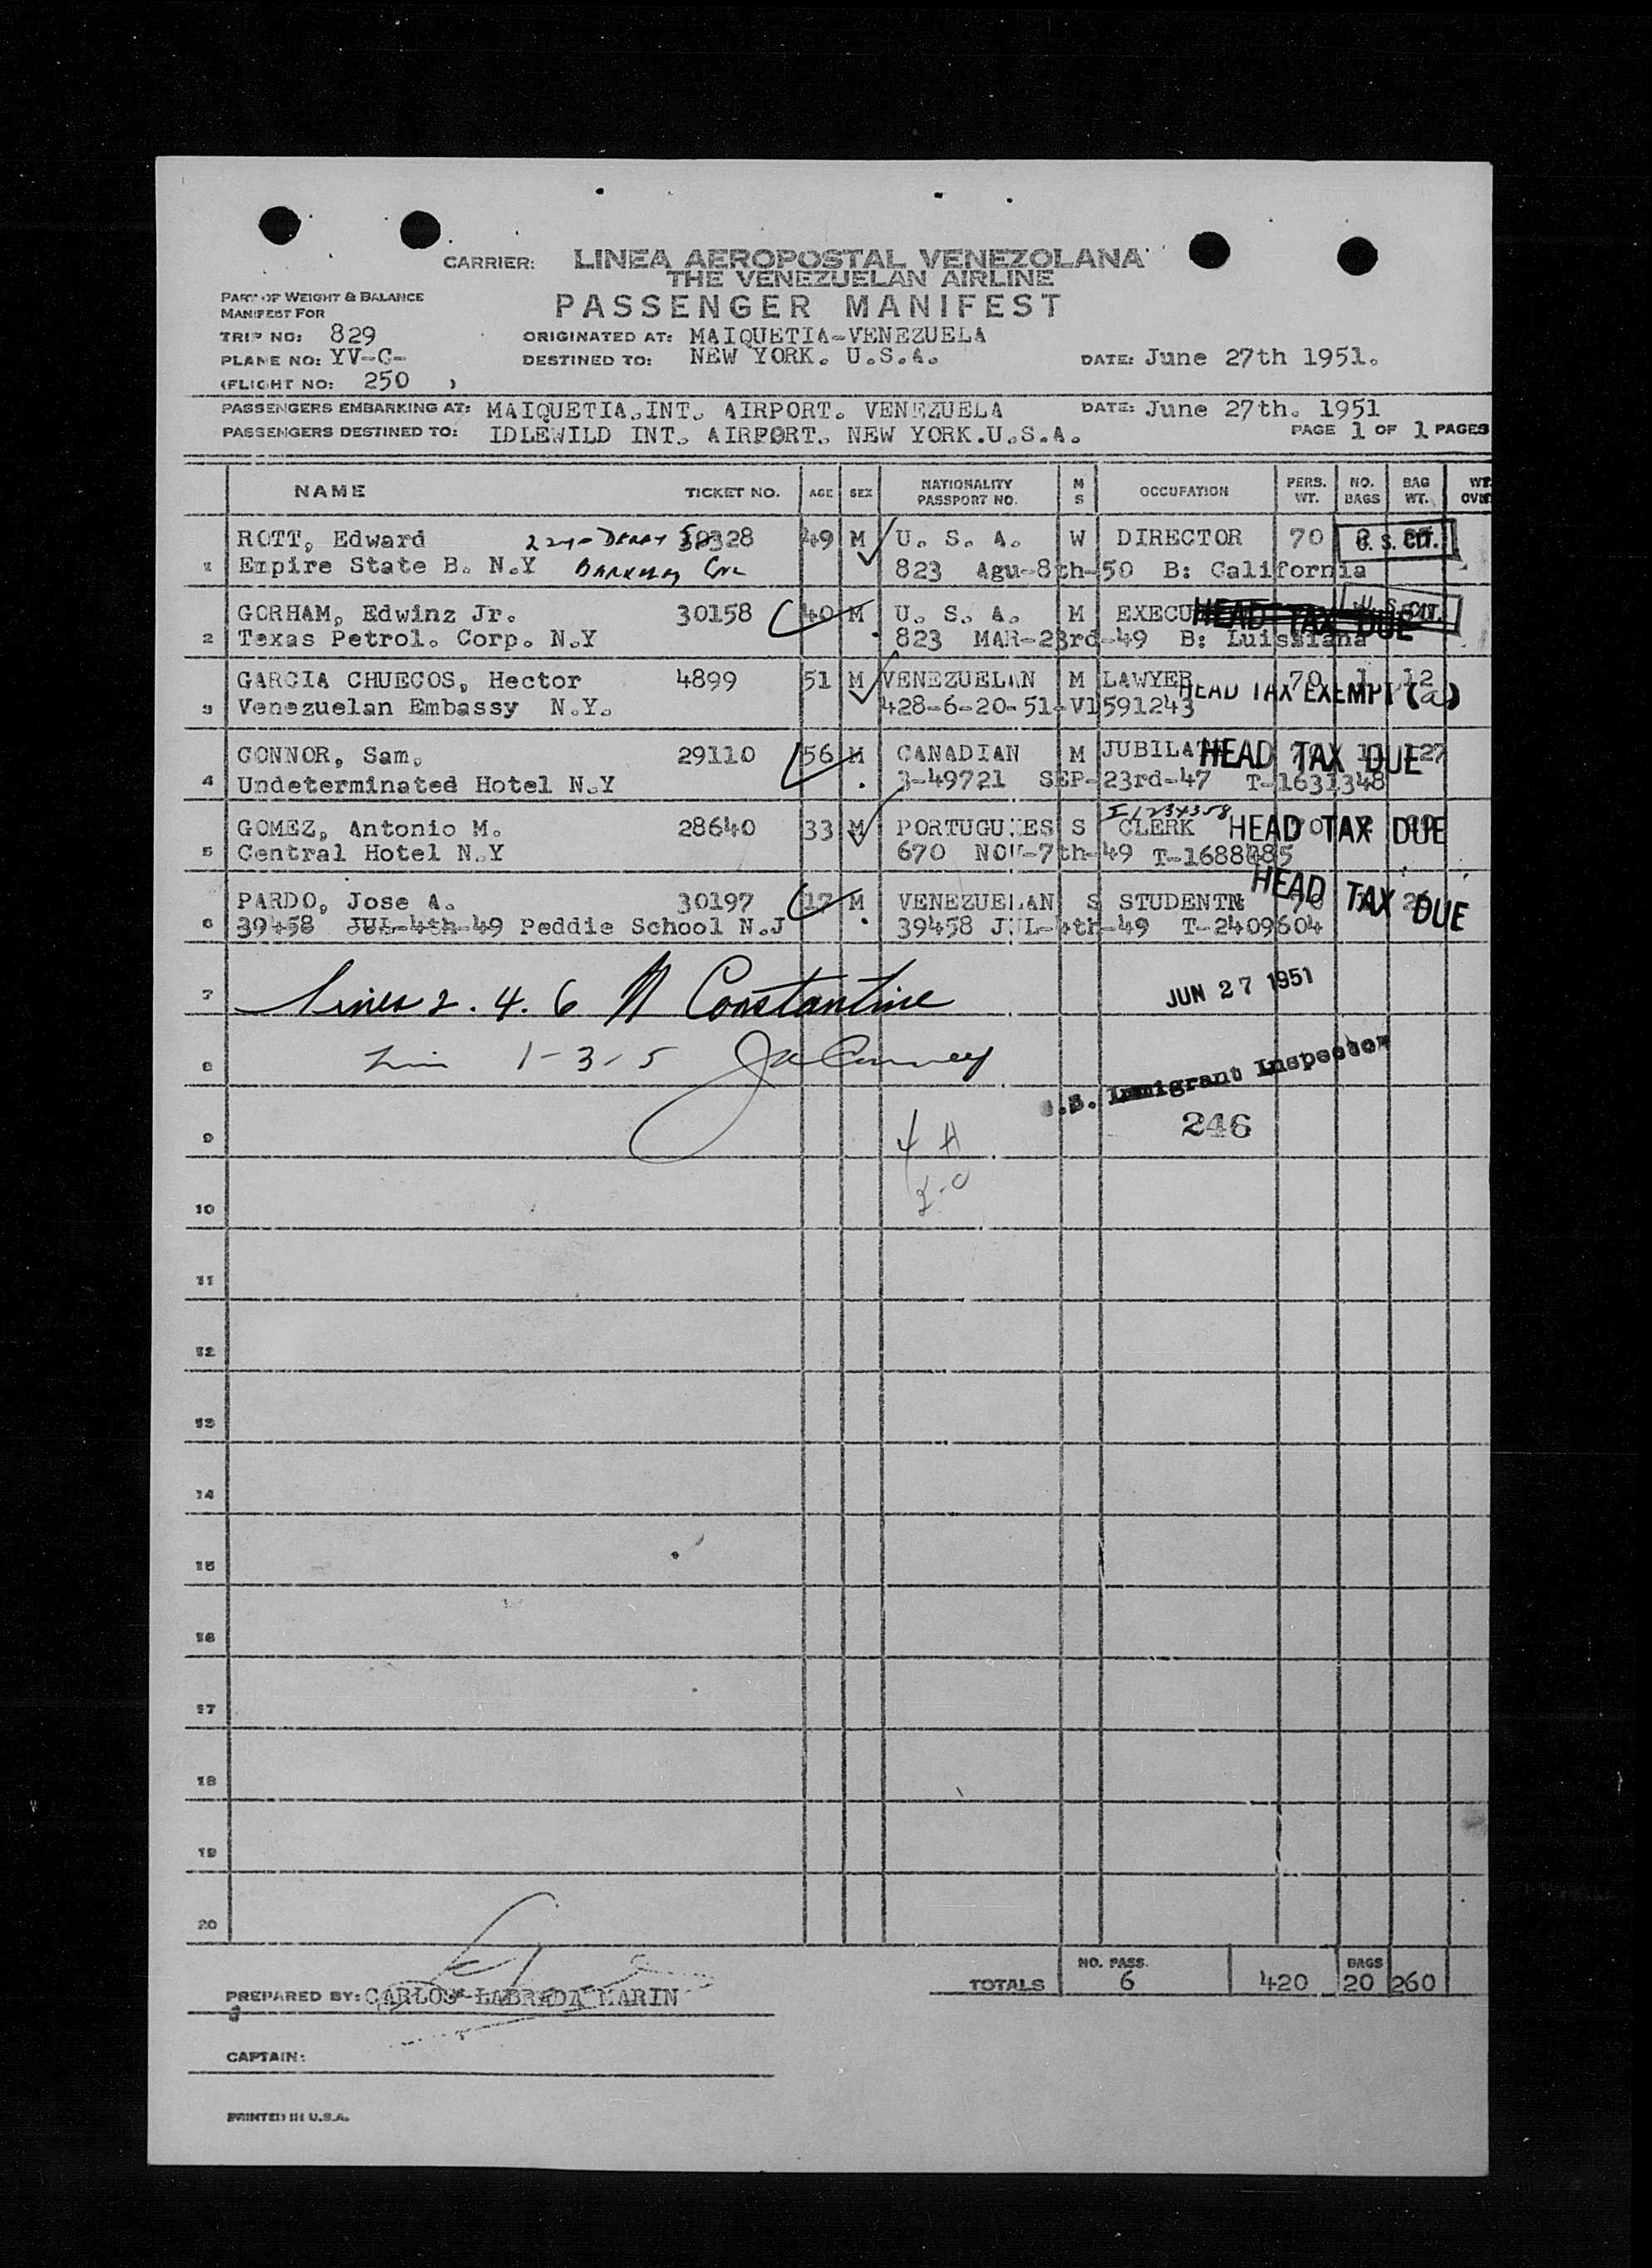 CARRIER: LINEA AEROPOSTAL VENEZOLANA
THE VENEZUELAN AIRLINE
PASSENGER MANIFEST
PART OF WEIGHT & BALANCE
MANIFEST FOR
TRIP NO: 829 ORIGINATED AT: MAIQUETIA-VENEZUELA
PLANE NO: YV-C- DESTINED TO: NEW YORK. U.S.A. DATE: June 27th 1951.
(FLIGHT NO: 250 )
PASSENGERS EMBARKING AT: MAIQUETIA.INT. AIRPORT. VENEZUELA DATE: June 27th. 1951
PASSENGERS DESTINED TO: IDLEWILD INT. AIRPORT. NEW YORK.U.S.A. PAGE 1 OF 1 PAGES
NAME TICKET NO. AGE SEX NATIONALITY PASSPORT NO. M S OCCUPATION PERS. WT. NO. BAGS BAG WT. WT.
ROTT, Edward 49 M U. S. A. W DIRECTOR 70 U. S. CIT.
1 Empire State B. N.Y 823 Agu-8th-50 B: California
GORHAM, Edwinz Jr. 30158 40 M U. S. A. M EXECU HEAD TAX DUE U. S. CIT.
2 Texas Petrol. Corp. N.Y 823 MAR-23rd-49 B: Luissiana
GARCIA CHUECOS, Hector 4899 51 M VENEZUELAN M LAWYER 70 1 12
3 Venezuelan Embassy N.Y. 428-6-20-51-V1591243 HEAD TAX EXEMPT (a)
GONNOR, Sam. 29110 56 M CANADIAN M JUBILA HEAD TAX DUE
4 Undeterminated Hotel N.Y 3-49721 SEP-23rd-47 T-1631348
GOMEZ, Antonio M. 28640 33 M PORTUGUESES S CLERK HEAD TAX DUE
5 Central Hotel N.Y 670 NOV-7th-49
PARDO, Jose A. 30197 17 M VENEZUELAN S STUDENTN HEAD TAX DUE
6 39458 JUL-4th-49 Peddie School N.J 39458 JUL-4th-49 T-2409604
7 Lines 2. 4. 6 Constantine JUN 27 1951
8 1-3-5
U.S. Immigrant Inspector
246
9
10
11
12
13
14
15
16
17
18
19
20
TOTALS NO. PASS. 6 420 BAGS 20 260
PREPARED BY: CARLOS LABRADA MARIN
CAPTAIN:
PRINTED IN U.S.A.